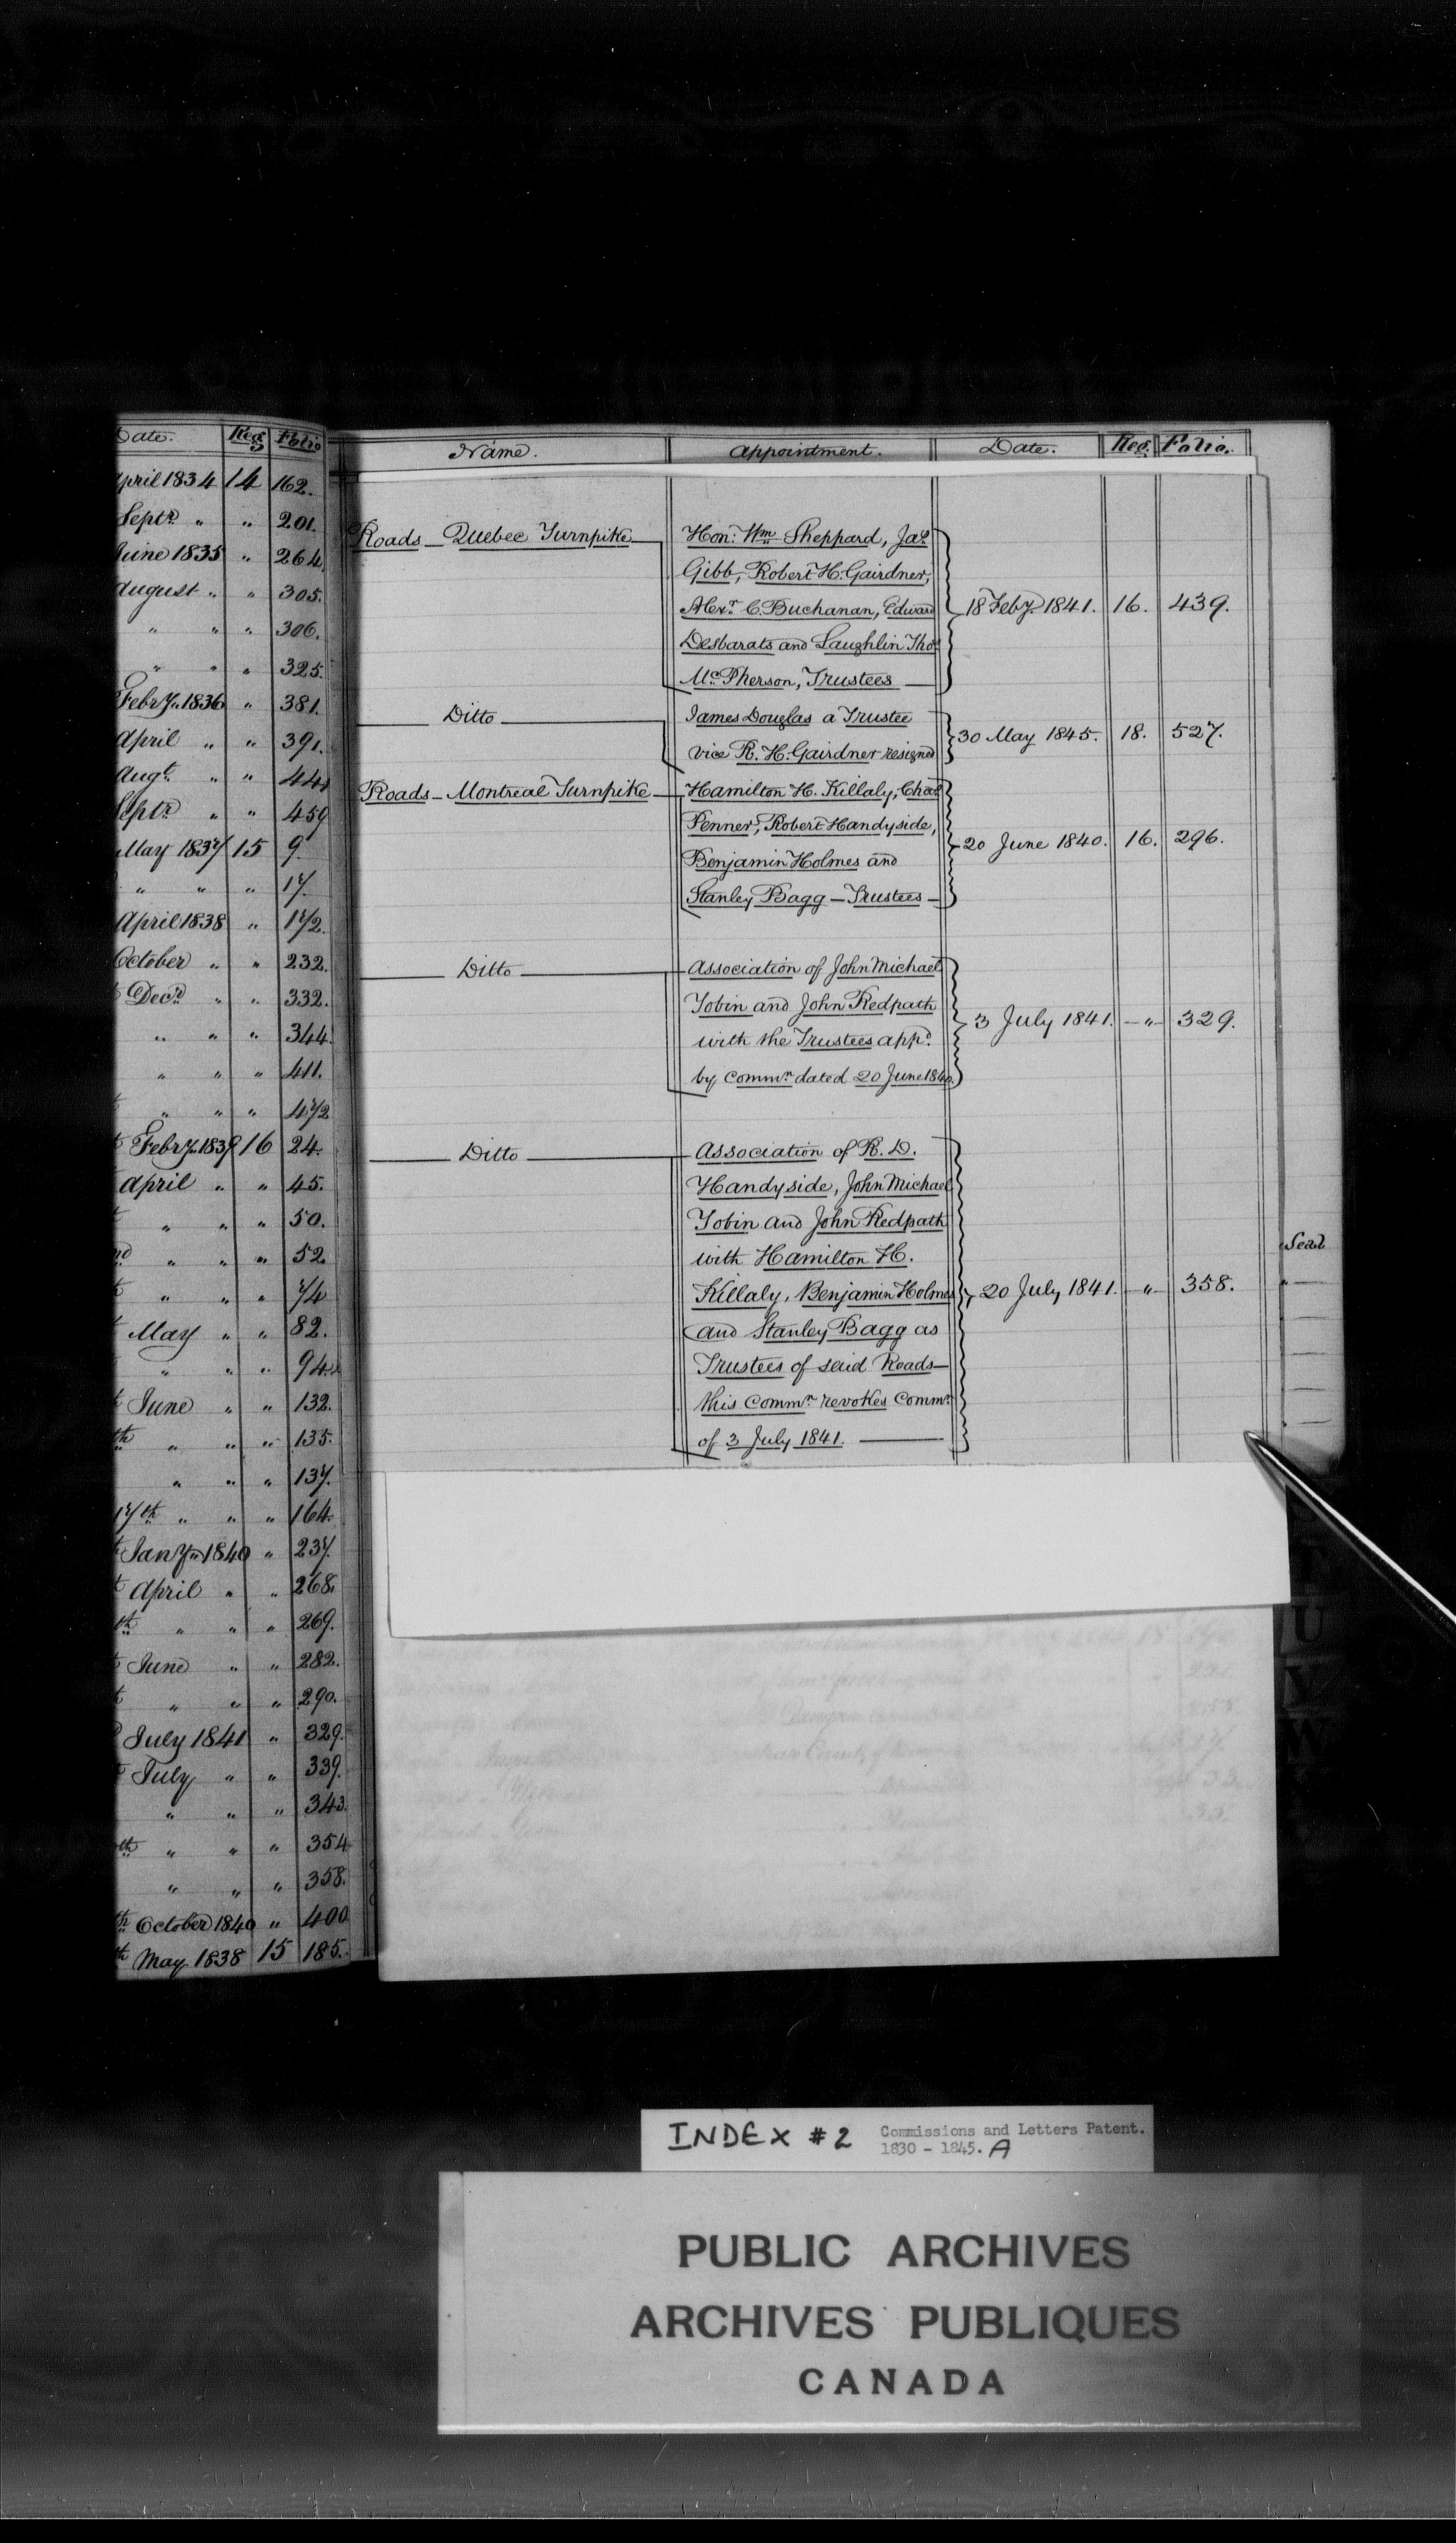 Date. Reg Folio
April 1834 14 162.
Septr. " " 201.
June 1835 " 264.
August " " 305.
" " " 306.
" " " 325.
Febry. 1836 " 381.
April " " 391.
Augt. " "
Septr. " " 459
May 1837 15 9.
" " " 17.
April 1838 " 172.
October " " 232.
Decr. " " 332.
" " " 344.
" " " 411.
" " " 472
Febry. 1839 16 24.
April " " 45.
" " " 50.
" " " 52.
" " " 74
May " " 82.
" " " 94.
June " " 132.
th " " " 135.
" " " 137.
17th " " " 164.
Jany. 1840 " 237.
April " " 268.
th " " " 269.
June " " 282.
" " " 290.
July 1841 " 329.
July " " 339.
" " " 343.
th " " " 354
" " " 358.
th October 1840 " 400
th May 1838 15 185.
Name. Appointment. Date. Reg. Folio.
Roads - Quebec Turnpike Hon: Wm. Sheppard, Jas.
Gibb, Robert H. Gairdner,
Alexr. C. Buchanan, Edward 18 Feby. 1841. 16. 439.
Desbarats and Laughlin Thos.
McPherson, Trustees —
— Ditto — James Douglas a Trustee
vice R. H. Gairdner resigned 30 May 1845. 18. 527.
Roads - Montreal Turnpike — Hamilton H. Killaly, Chas.
Penner, Robert Handyside,
Benjamin Holmes and 20 June 1840. 16. 296.
Stanley Bagg - Trustees -
— Ditto — Association of John Michael
Tobin and John Redpath
with the Trustees appd. 3 July 1841. - " - 329.
by Commn. dated 20 June 1840.
— Ditto — Association of R. D.
Handyside, John Michael
Tobin and John Redpath
with Hamilton H.
Killaly, Benjamin Holmes 20 July 1841. - " - 358.
and Stanley Bagg as
Trustees of said Roads -
this Commn. revokes Commn.
of 3 July 1841. —
Seal
U
V
W
INDEX #2 Commissions and Letters Patent.
1830 - 1845. A
PUBLIC ARCHIVES
ARCHIVES PUBLIQUES
CANADA